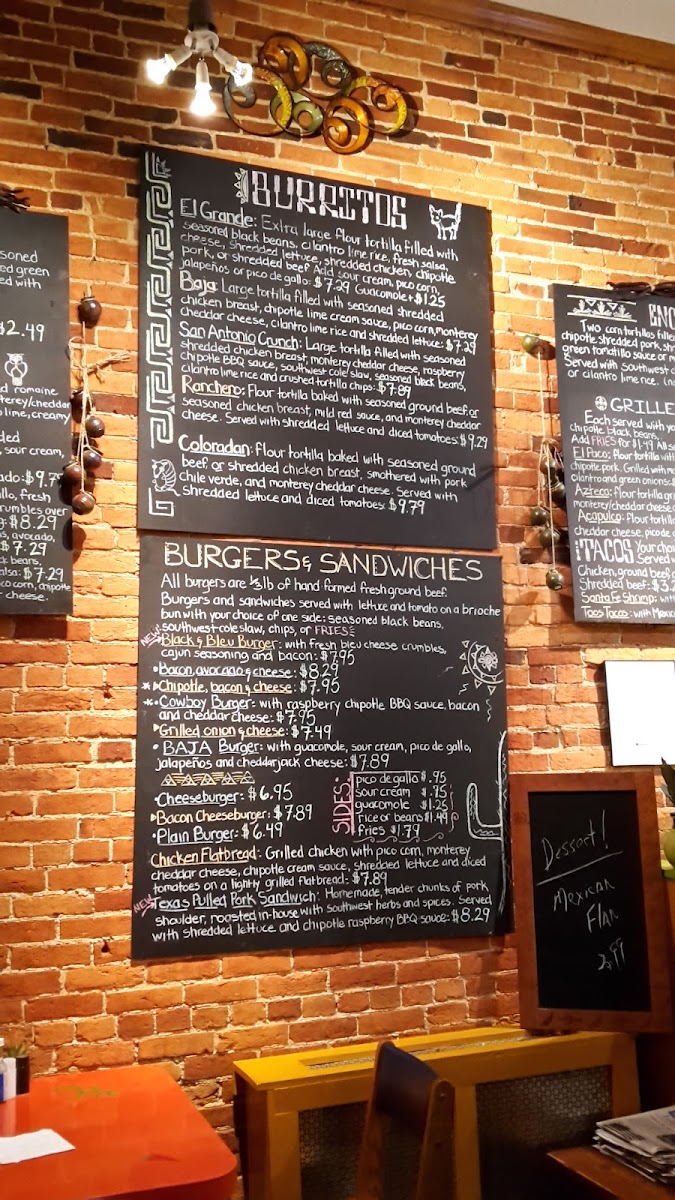 soned
ed green
ed with
$2.49
d romaine
terey/cheddar
lime, creamy
ded
sour cream,
ado: $9.7
llo, fresh
rumbles over
g: $8.29
s, avocado,
$7.29
ck beans,
lsa: $7.29
co corn, chipotle
r cheese.
BURRITOS
El Grande: Extra large flour tortilla filled with
seasoned black beans, cilantro lime rice, fresh salsa,
cheese, shredded lettuce, shredded chicken, chipotle
pork, or shredded beef. Add sour cream, pico corn,
jalapeños or pico de gallo: $7.29 Guacamole + $1.25
Baja: Large tortilla filled with seasoned shredded
chicken breast, chipotle lime cream sauce, pico corn, monterey
cheddar cheese, cilantro lime rice and shredded lettuce: $7.29
San Antonio Crunch: Large tortilla filled with seasoned
shredded chicken breast, monterey cheddar cheese, raspberry
chipotle BBQ sauce, southwest cole slaw, seasoned black beans,
cilantro lime rice and crushed tortilla chips: $7.89
Ranchero: Flour tortilla baked with seasoned ground beef, or
seasoned chicken breast, mild red sauce, and monterey cheddar
cheese. Served with shredded lettuce and diced tomatoes: $9.29
Coloradan: Flour tortilla baked with seasoned ground
beef or shredded chicken breast, smothered with pork
chile verde, and monterey cheddar cheese. Served with
shredded lettuce and diced tomatoes: $9.79
BURGERS & SANDWICHES
All burgers are ⅓ lb of hand formed fresh ground beef.
Burgers and sandwiches served with lettuce and tomato on a brioche
bun with your choice of one side: seasoned black beans,
southwest coleslaw, chips, or FRIES
NEW Black & Bleu Burger: with fresh bleu cheese crumbles,
cajun seasoning and bacon: $7.95
• Bacon, avocado & cheese: $8.29
Chipotle, bacon & cheese: $7.95
Cowboy Burger: with raspberry chipotle BBQ sauce, bacon
and cheddar cheese: $7.95
Grilled onion & cheese: $7.49
• BAJA Burger: with guacamole, sour cream, pico de gallo,
jalapeños and cheddarjack cheese: $7.89
• Cheeseburger: $6.95
Bacon Cheeseburger: $7.89
• Plain Burger: $6.49
SIDES:
pico de gallo $.95
sour cream $.75
guacamole $1.25
rice or beans $1.49
fries $1.79
Chicken Flatbread: Grilled chicken with pico corn, monterey
cheddar cheese, chipotle cream sauce, shredded lettuce and diced
tomatoes on a lightly grilled flatbread: $7.89
NEW Texas Pulled Pork Sandwich: Homemade, tender chunks of pork
shoulder, roasted in-house with southwest herbs and spices. Served
with shredded lettuce and chipotle raspberry BBQ sauce: $8.29
ENC
Two corn tortillas fille
chipotle shredded pork, shr
green tomatillo sauce or m
Served with southwest c
or cilantro lime rice.
GRILLE
Each served with yo
chipotle black beans,
Add FRIES for $1.49
El Paco: Flour tortilla with
chipotle pork. Grilled with m
cilantro and green onions:
Azteca: Flour tortilla gri
monterey/cheddar cheese
Acapulco: Flour tortill
cheddar cheese, pico de
TACOS Your choi
Served
Chicken, ground beef
Shredded beef: $3.
Santa Fe Shrimp: with
Taos Tacos: with Mexic
Dessert!
Mexican
Flan
2.99